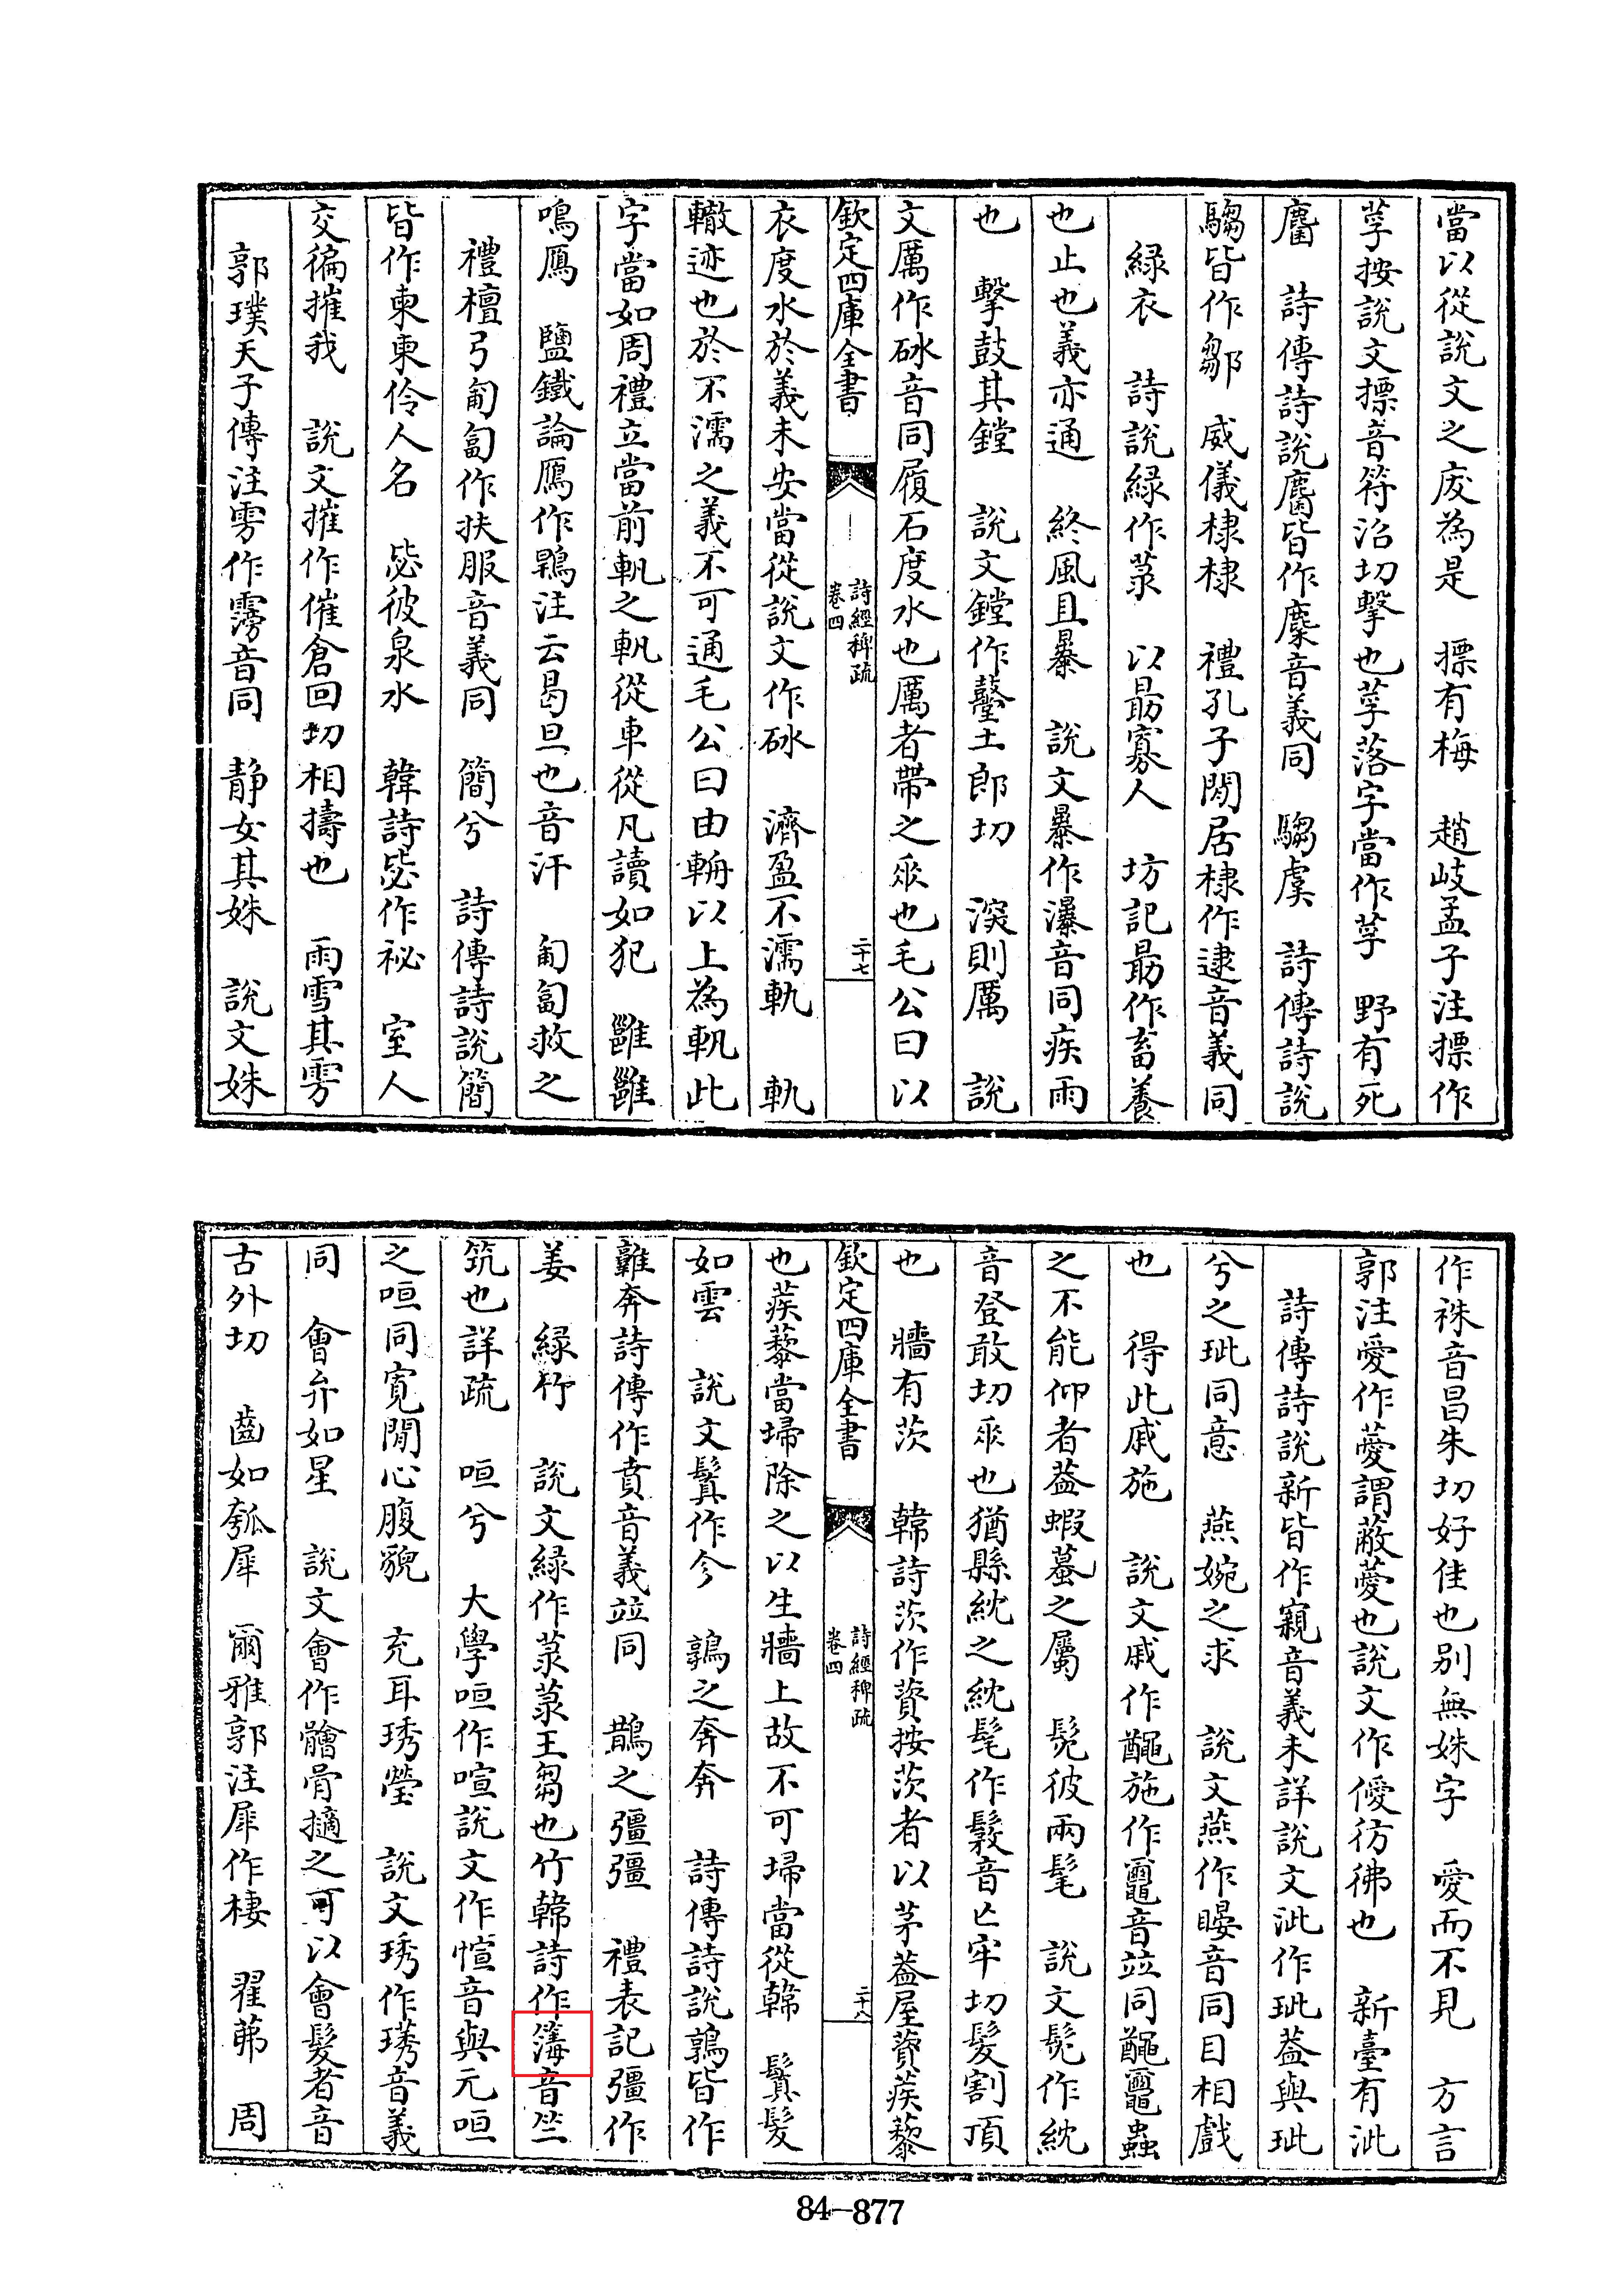 當以從説文之庋為是　摽有梅　趙岐孟子注摽作
莩按説文摽音符沼切擊也莩落字當作莩　野有死
麕　詩傳詩説麕皆作麇音義同　騶虞　詩傳詩説
騶皆作鄒　威儀棣棣　禮孔子閒居棣作逮音義同
緑衣　詩説緑作菉　以勗寡人　坊記勗作畜養
也止也義亦通　終風且暴　説文暴作瀑音同疾雨
也　擊鼓其鏜　説文鏜作鼞土郎切　深則厲　説
文厲作砅音同履石度水也厲者帶之垂也毛公曰以
欽定四庫全書　詩經稗疏　卷四　二十七
衣度水於義未安當從説文作砅　濟盈不濡軌　軌
轍迹也於不濡之義不可通毛公曰由輈以上為軓此
字當如周禮立當前軓之軓從車從凡讀如犯　雝雝
鳴鴈　鹽鐵論鴈作鳱注云曷旦也音汗　匍匐救之
禮檀弓匍匐作扶服音義同　簡兮　詩傳詩説簡
皆作柬柬伶人名　毖彼泉水　韓詩毖作祕　室人
交徧摧我　説文摧作催倉回切相擣也　雨雪其雱
郭璞天子傳注雱作霶音同　静女其姝　説文姝
作袾音昌朱切好佳也别無姝字　愛而不見　方言
郭注愛作薆謂蔽薆也説文作僾彷彿也　新臺有泚
詩傳詩説新皆作窺音義未詳説文泚作玼葢與玼
兮之玼同意　燕婉之求　説文燕作暥音同目相戲
也　得此戚施　説文戚作䵳施作𪓰音竝同䵳𪓰蟲
之不能仰者葢蝦蟇之屬　髧彼兩髦　説文髧作紞
音登敢切垂也猶縣紞之紞髦作髳音亡牢切髮割頂
也　牆有茨　韓詩茨作薋按茨者以茅葢屋薋蒺藜
欽定四庫全書　詩經稗疏　卷四　二十八
也蒺藜當埽除之以生牆上故不可埽當從韓　鬒髮
如雲　説文鬒作㐱　鶉之奔奔　詩傳詩説鶉皆作
鷻奔詩傳作賁音義竝同　鵲之彊彊　禮表記彊作
姜　緑竹　説文緑作菉菉王芻也竹韓詩作音竺
筑也詳疏　咺兮　大學咺作喧説文作愃音與元咺
之咺同寛閒心腹貌　充耳琇瑩　説文琇作璓音義
同　會弁如星　説文會作䯤骨擿之可以會髮者音
古外切　齒如瓠犀　爾雅郭注犀作棲　翟茀　周
84-877